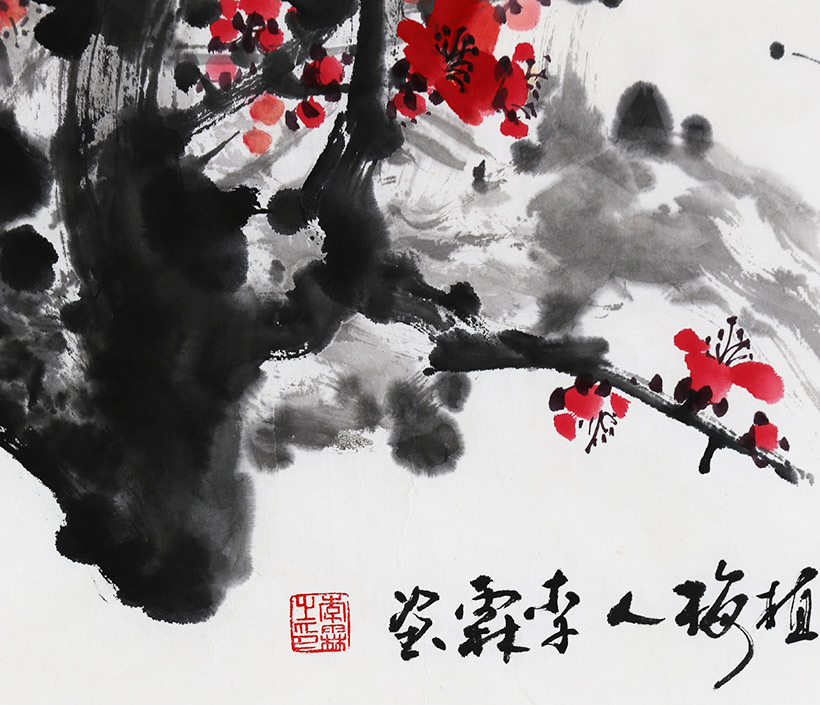 植梅人李霖画
李霖之印